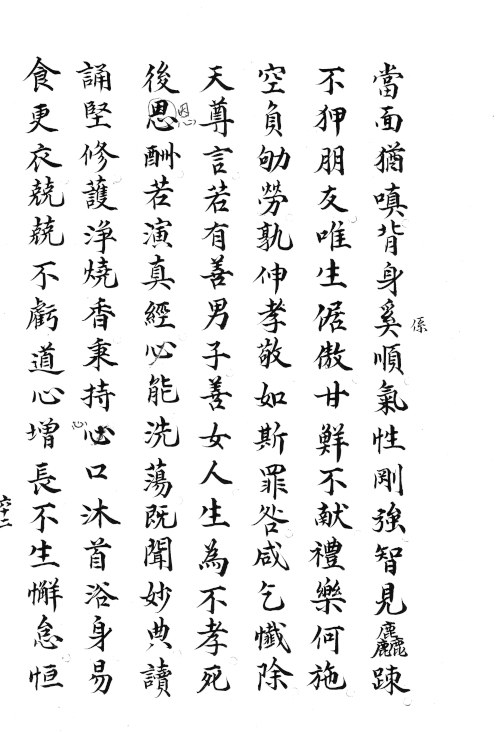 當面猶嗔背身奚順氣性剛強智見麤踈
係
不狎朋友唯生倨傲甘鮮不献禮樂何施
空負劬勞孰伸孝敬如斯罪咎咸乞懺除
天尊言若有善男子善女人生為不孝死
後恩酬若演真經必能洗蕩既聞妙典讀
恩
誦堅修護淨燒香秉持心口沐首浴身易
心
食更衣兢兢不虧道心增長不生懈怠恒
六十二